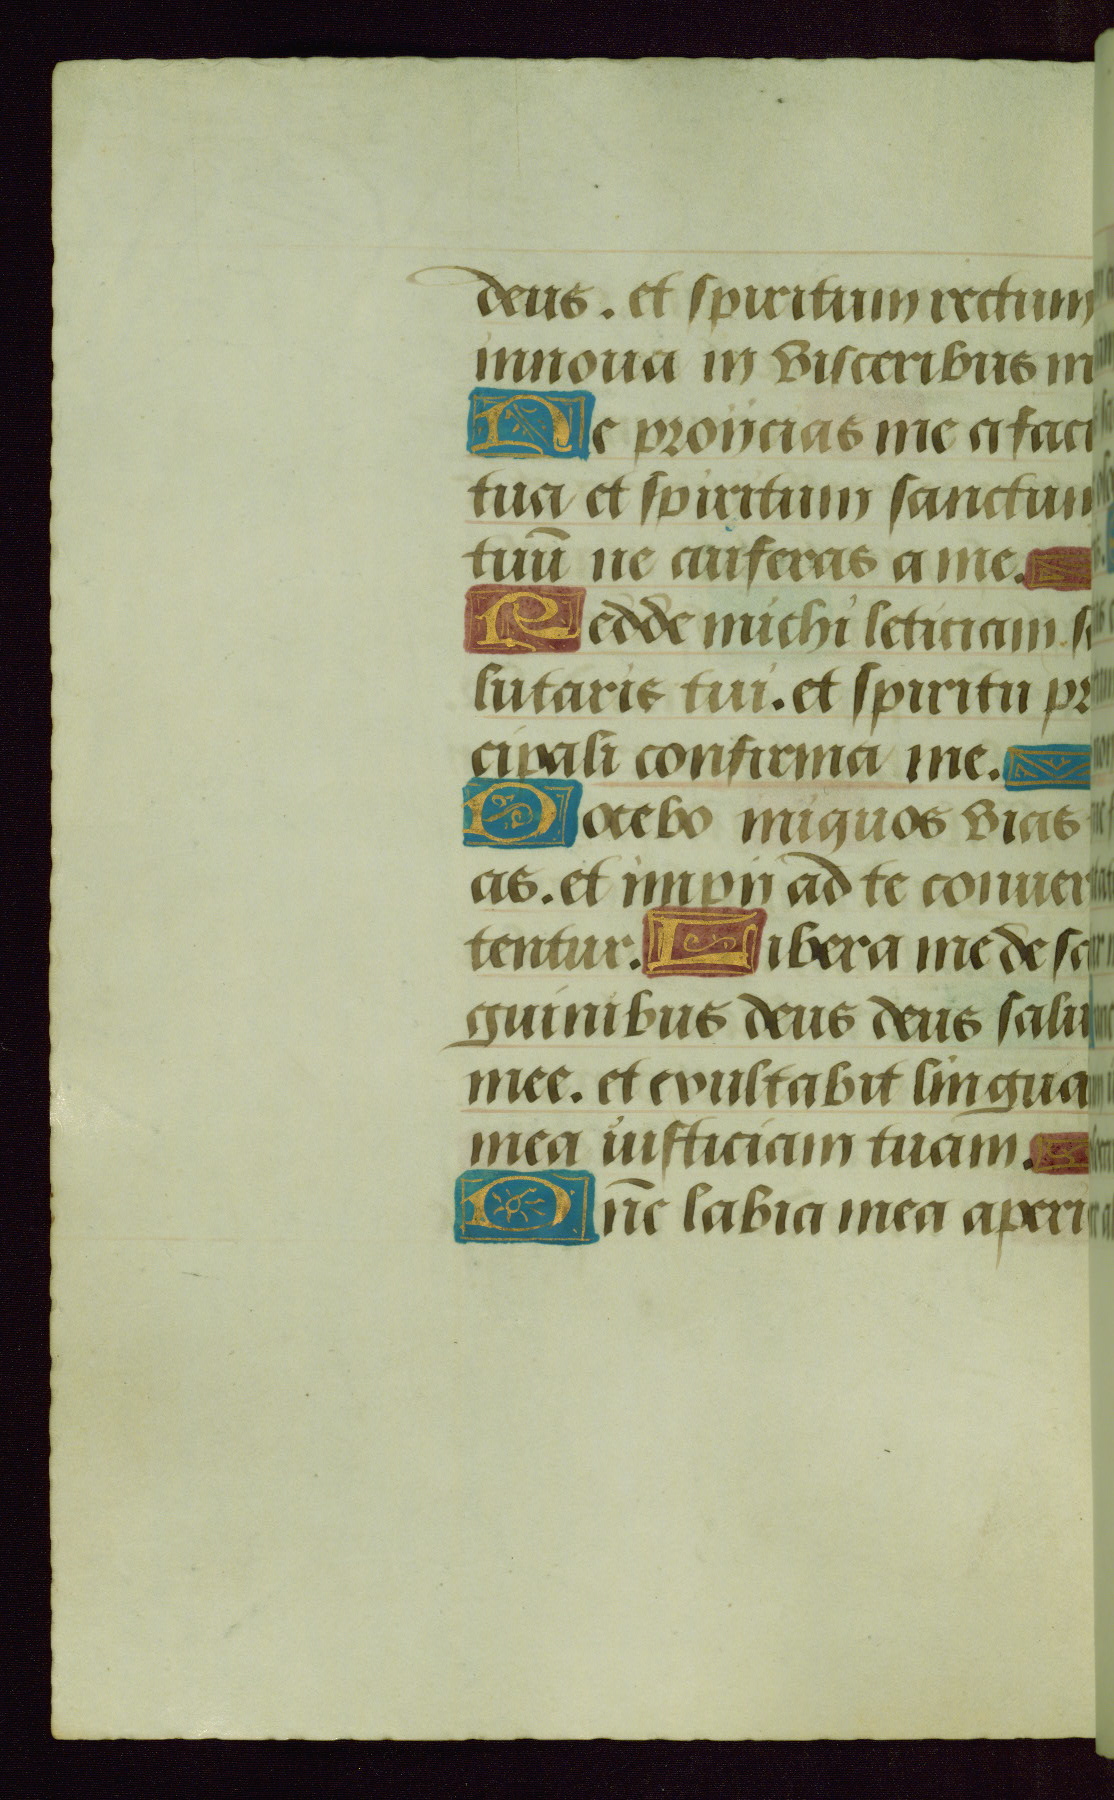 deus. et spiritum rectum
innoua in visceribus m
Ne proiicias me a faci
tua et spiritum sanctum
tuū ne auferas a me.
Redde michi leticiam sa
lutaris tui. et spiritu pr
cipali confirma me.
Docebo iniquos vias
as. et impii ad te conuer
tentur. Libera me de sa
guinibus deus deus salu
mee. et exultabit lingua
mea iusticiam tuam.
Dñe labia mea aperi